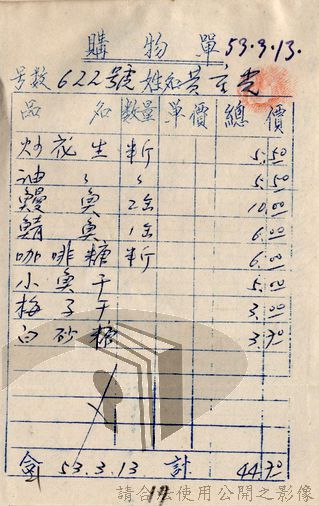 購物單 53.3.13.
号数 622號 姓名 黃
品名 数量 单價 總價
炒花生 半斤 5.50
油〃 〃 5.50
鰻魚 2缶 10.00
鯖魚 1缶 6.00
咖啡糖 半斤 6.00
小魚干 5.00
梅子干 3.00
白砂糖 3.70
53.3.13 計 44.70
請合法使用公開之影像